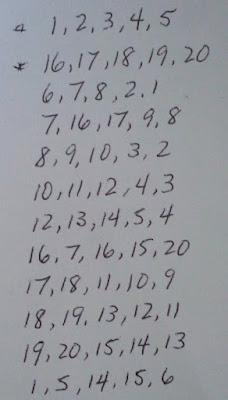 * 1, 2, 3, 4, 5
* 16, 17, 18, 19, 20
6, 7, 8, 2, 1
7, 16, 17, 9, 8
8, 9, 10, 3, 2
10, 11, 12, 4, 3
12, 13, 14, 5, 4
16, 7, 16, 15, 20
17, 18, 11, 10, 9
18, 19, 13, 12, 11
19, 20, 15, 14, 13
1, 5, 14, 15, 6